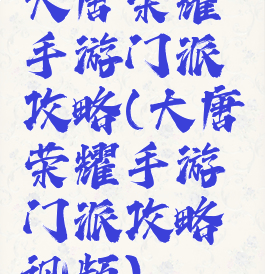 大唐荣耀
手游门派
攻略(大唐
荣耀手游
门派攻略
视频)